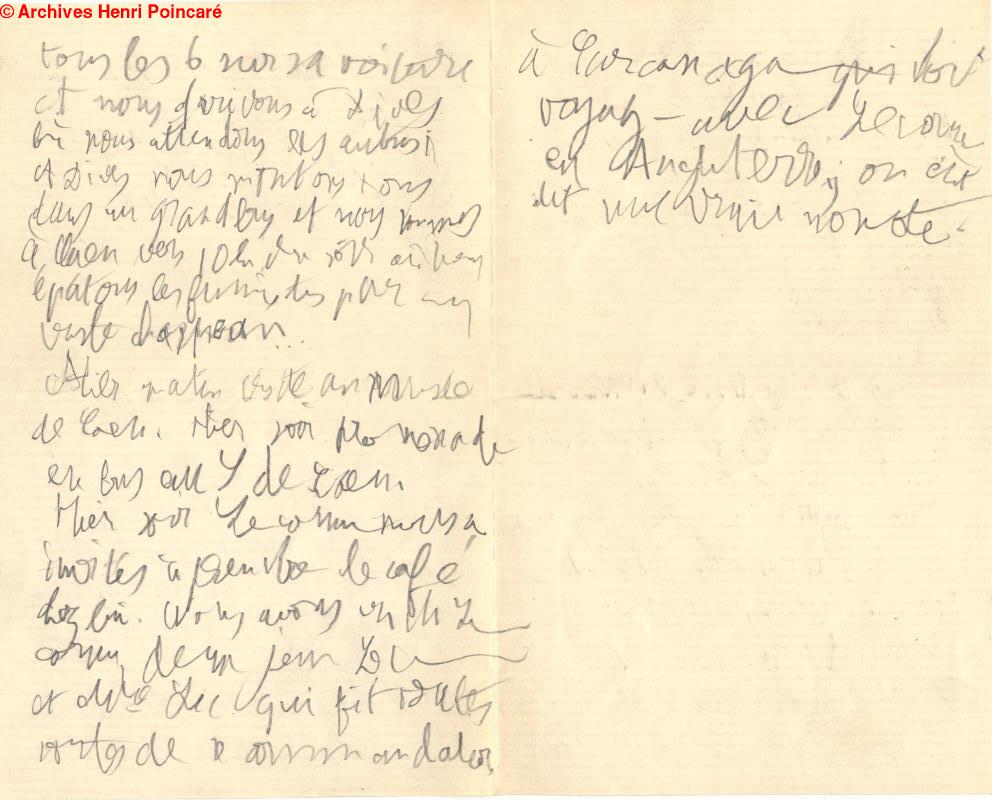 © Archives Henri Poincaré
tous les 6 sur sa voiture
et nous arrivons à Dives
là nous attendons les autres
A Dives nous montons tous
dans un grand bus et nous sommes
à Caen vers 10h du soir où nous
épatons les fumistes par un
vaste chapeau.
Hier matin visite au Musée
de Caen. Hier soir promenade
en bus au S de Caen.
Hier soir Lecornu nous a
invités à prendre le café
chez lui. Nous avons vu Me Le
cornu, deux jeun Le
et Mme Lec qui fit toutes
sortes de recommandations
à qui doit
voyag avec Lecornu
en Angleterre; on eût
dit une vraie